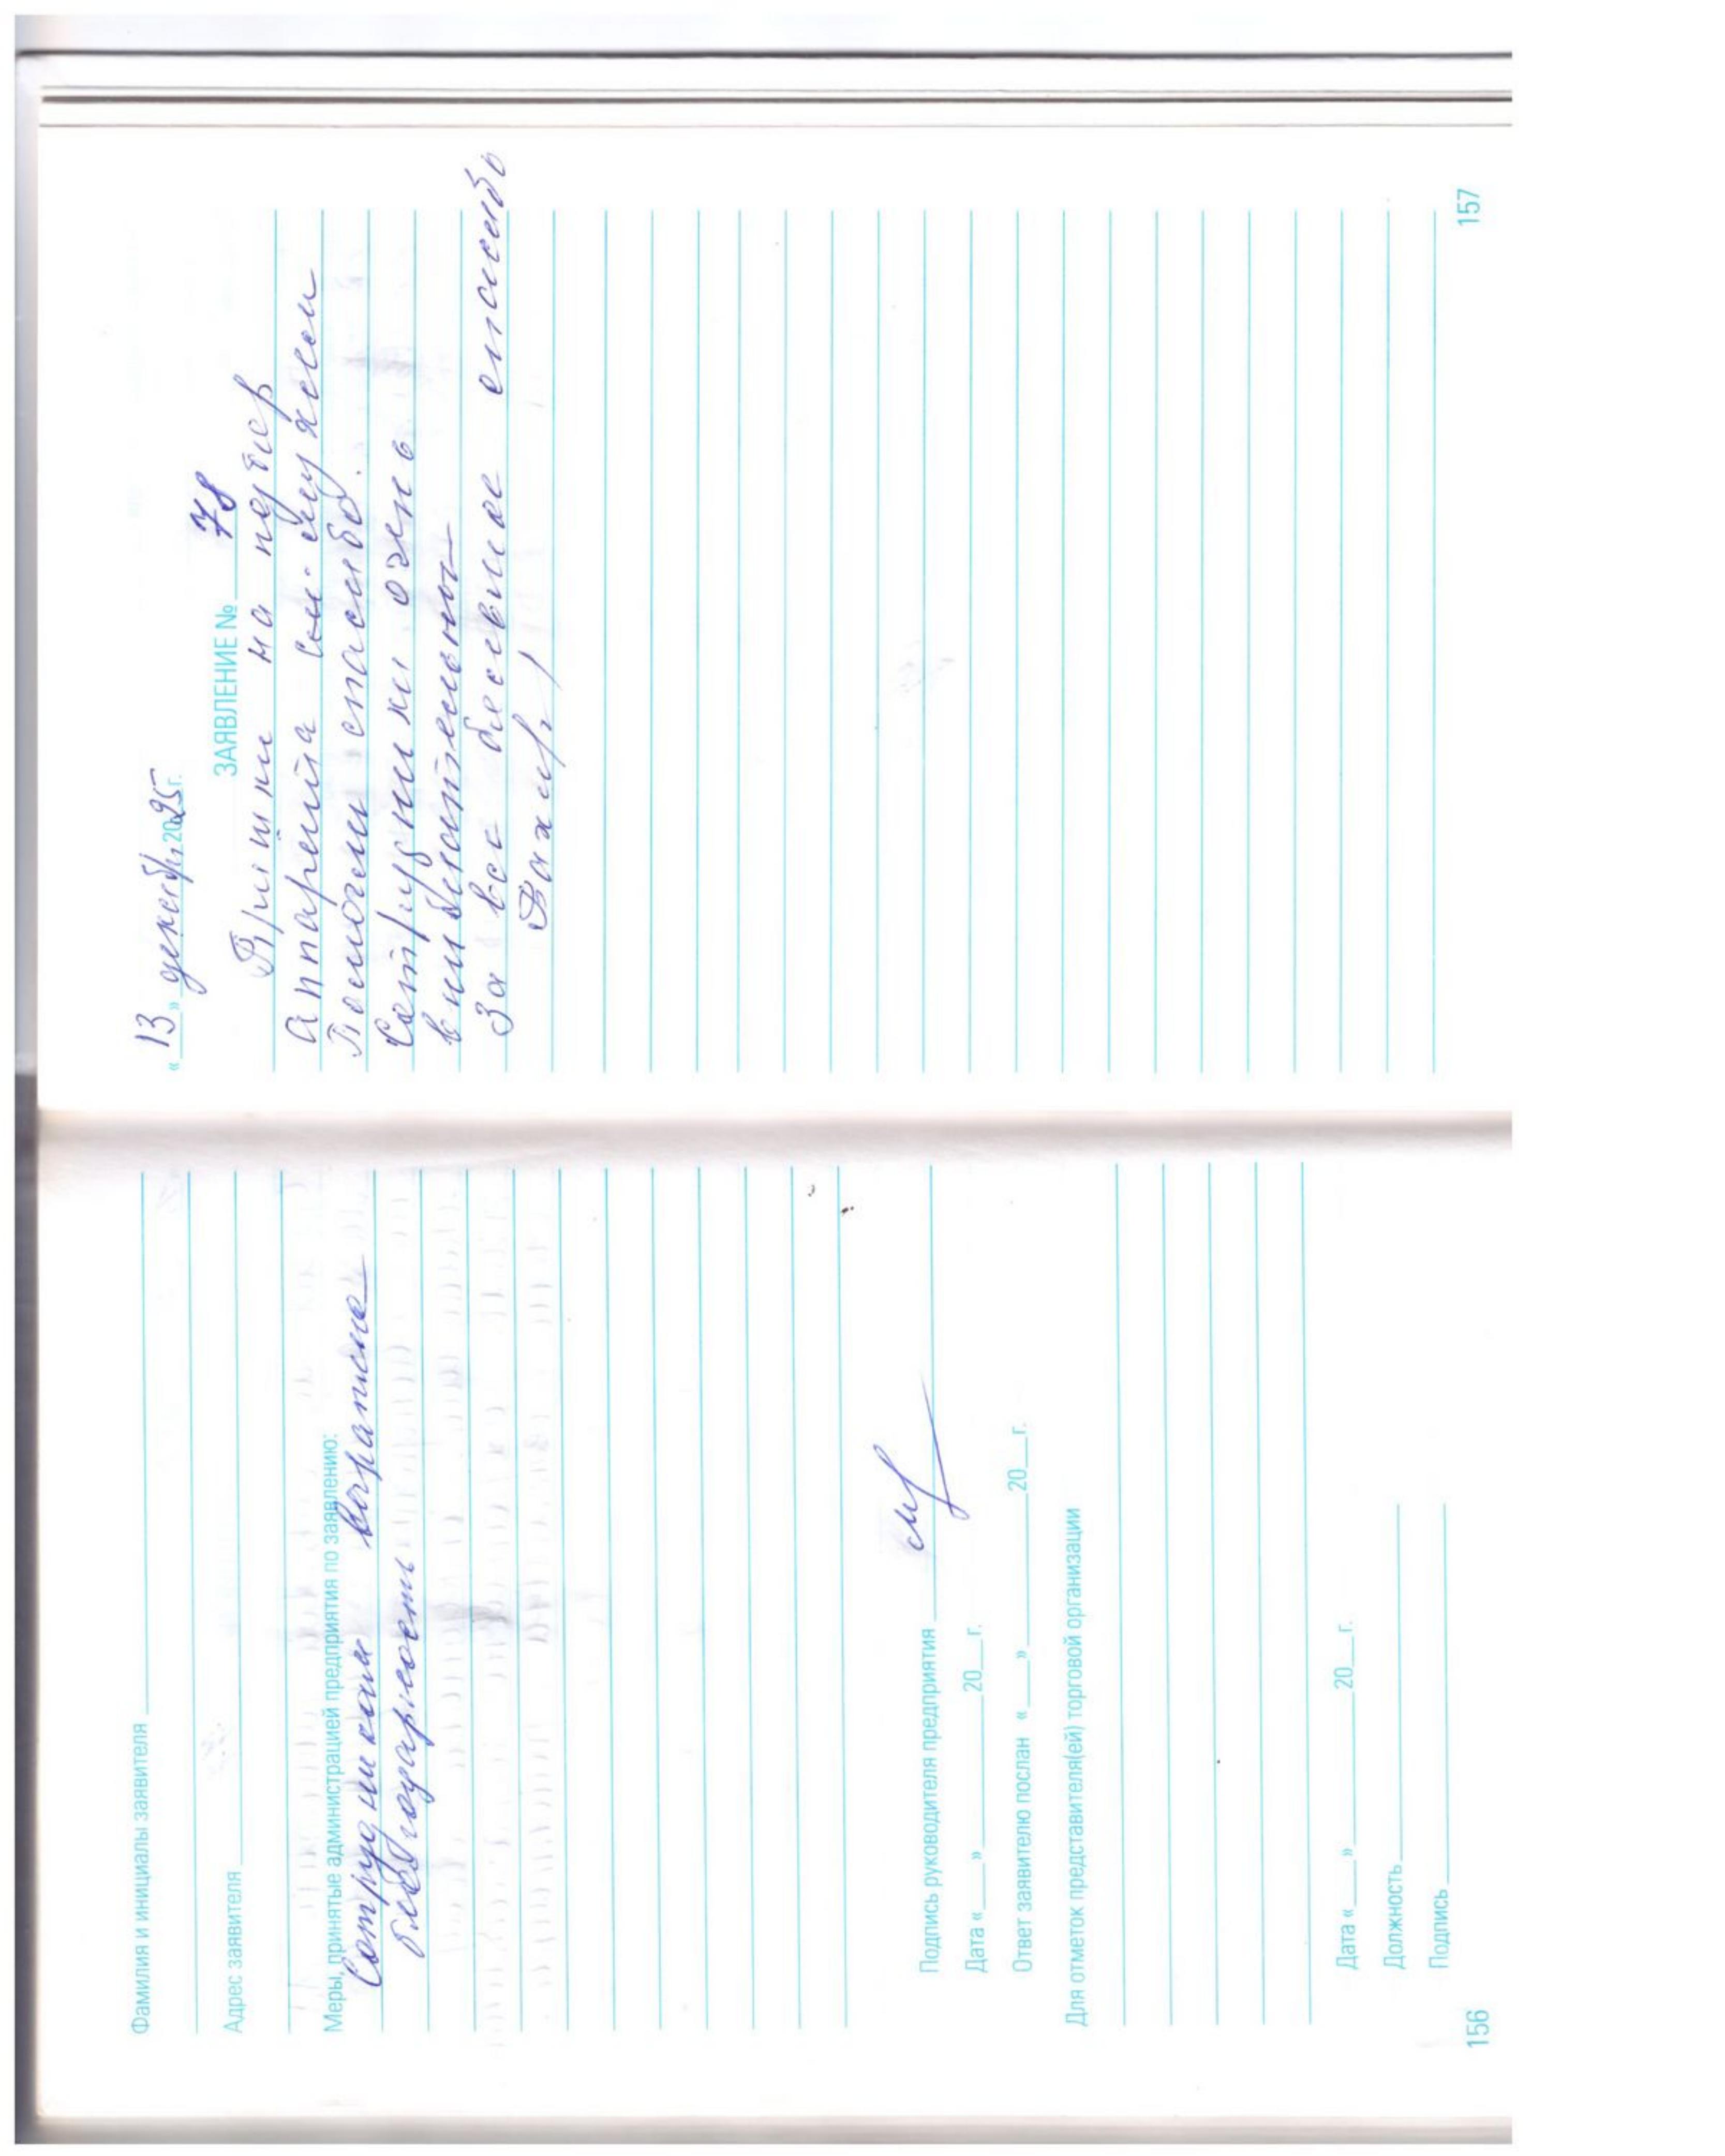 Фамилия и инициалы заявителя
Адрес заявителя
Меры, принятые администрацией предприятия по заявлению:
Сотрудникам выражена
благодарность
Подпись руководителя предприятия
Дата «___» ______ 20__г.
Ответ заявителю послан «___» ______ 20__г.
Для отметок представителя(ей) торговой организации
Дата «___» ______ 20__г.
Должность
Подпись
156
«13» декабря 2025 г.
ЗАЯВЛЕНИЕ № 78
на
аппарента
Помогли спасибо.
Сотрудники очень
внимательны
За все большое спасибо
157